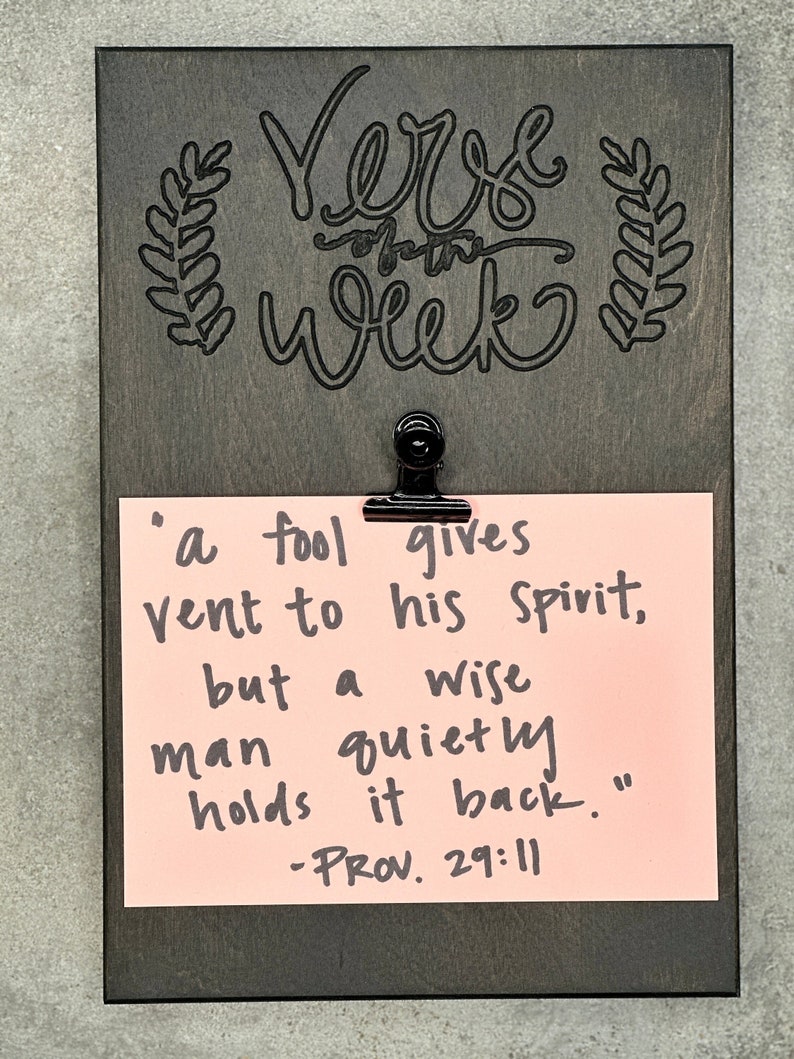 Verse
of the
Week
"a fool gives
vent to his spirit,
but a wise
man quietly
holds it back."
-PROV. 29:11